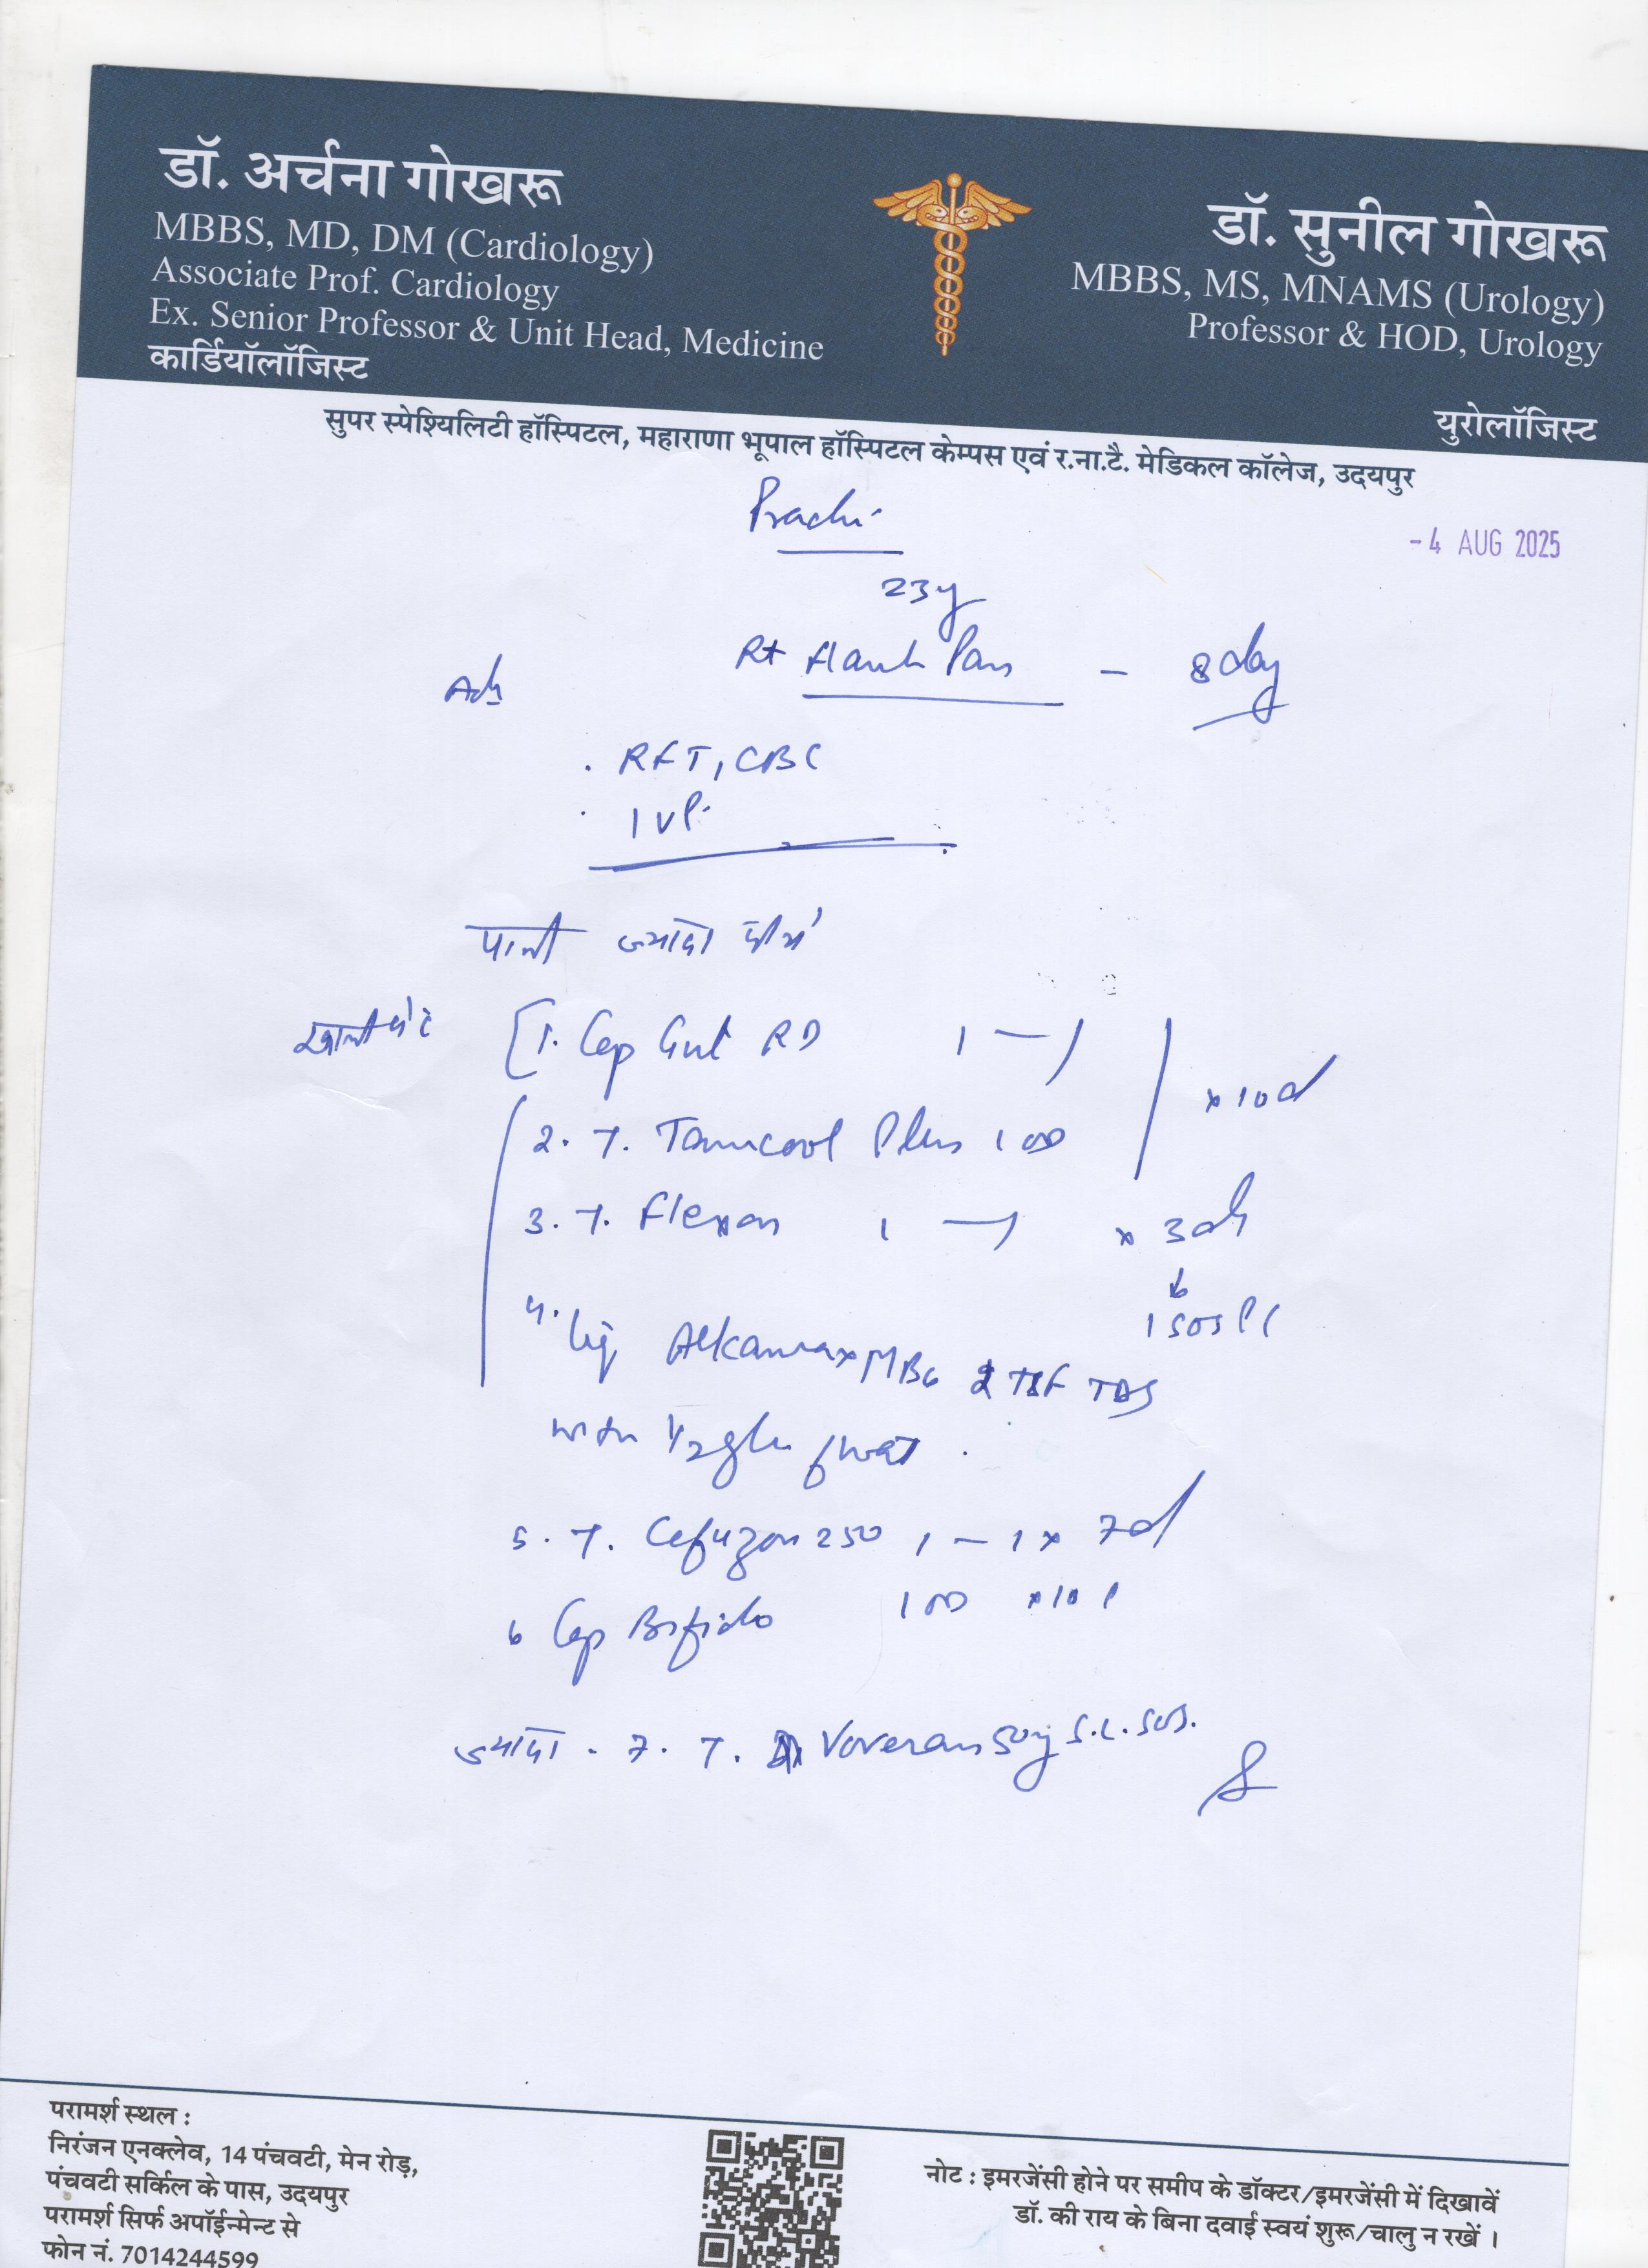 डॉ. अर्चना गोखरू
MBBS, MD, DM (Cardiology)
Associate Prof. Cardiology
Ex. Senior Professor & Unit Head, Medicine
कार्डियॉलॉजिस्ट
डॉ. सुनील गोखरू
MBBS, MS, MNAMS (Urology)
Professor & HOD, Urology
युरोलॉजिस्ट
सुपर स्पेश्यिलिटी हॉस्पिटल, महाराणा भूपाल हॉस्पिटल केम्पस एवं र.ना.टै. मेडिकल कॉलेज, उदयपुर
Prachi
-4 AUG 2025
23y
Rt Flank Pain - 8 day
Adv
. RFT, CBC
. IVP.
पानी ज्यादा पीयें
खाली पेट
1. Cap Gut RD 1 — 1
x 10d
2. T. Tamcool Plus 1 OD
3. T. Flexon 1 — 1 x 3d
1 SOS
4. Liq Alkamax MB6 2 TSF TDS
with 1/2 glass of water
5. T. Cefuzon 250 1 - 1 x 7d
6 Cap Bifido 1 OD x10
ज्यादा - 7. T. Voveran 50mg S.L. SOS.
परामर्श स्थल :
निरंजन एनक्लेव, 14 पंचवटी, मेन रोड़,
पंचवटी सर्किल के पास, उदयपुर
परामर्श सिर्फ अपॉईन्मेन्ट से
फोन नं. 7014244599
नोट : इमरजेंसी होने पर समीप के डॉक्टर/इमरजेंसी में दिखावें
डॉ. की राय के बिना दवाई स्वयं शुरू/चालु न रखें ।